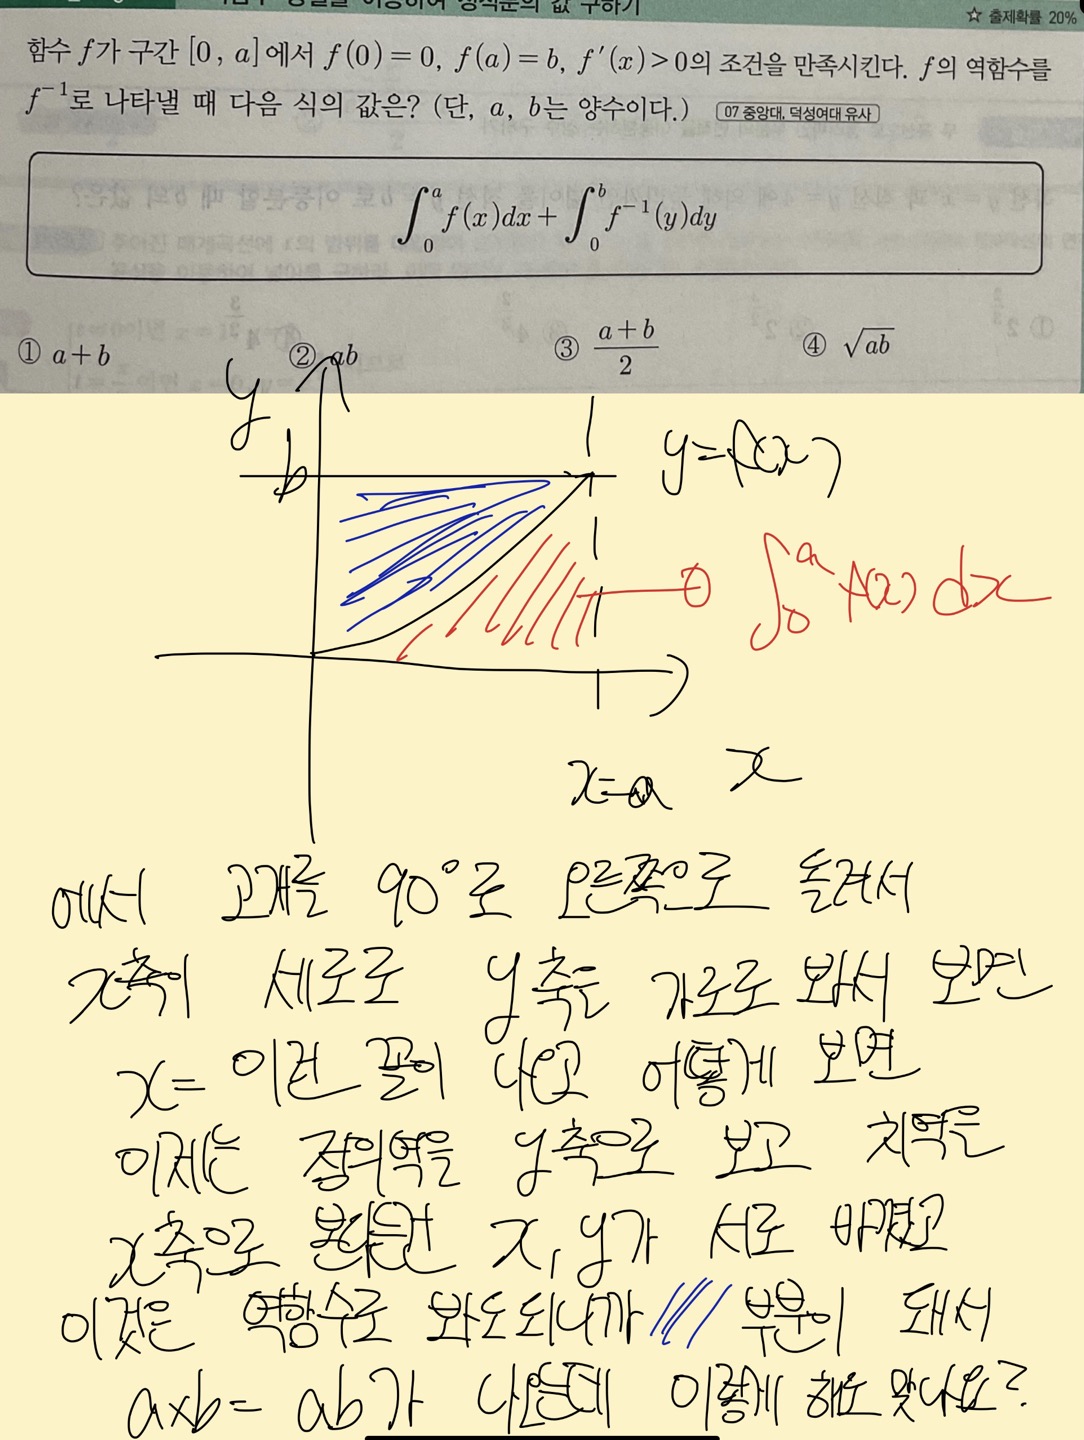 정적분의 값 구하기
☆ 출제확률 20%
함수 f가 구간 [0, a]에서 f(0)=0, f(a)=b, f′(x)>0의 조건을 만족시킨다. f의 역함수를
f⁻¹로 나타낼 때 다음 식의 값은? (단, a, b는 양수이다.) 07 중앙대, 덕성여대 유사
∫₀ᵃ f(x)dx + ∫₀ᵇ f⁻¹(y)dy
① a+b ② ab ③ (a+b)/2 ④ √ab
y
b
y=f(x)
∫₀ᵃ f(x) dx
x=a x
에서 고개를 90°로 오른쪽으로 돌려서
x축이 세로로 y축은 가로로 봐서 보면
x= 이런 꼴이 나오고 어떻게 보면
이제는 정의역을 y축으로 보고 치역은
x축으로 본다는건 x, y가 서로 바꼈고
이것은 역함수로 봐도되니까 부분이 돼서
a×b= ab가 나오는데 이렇게 해도 맞나요?